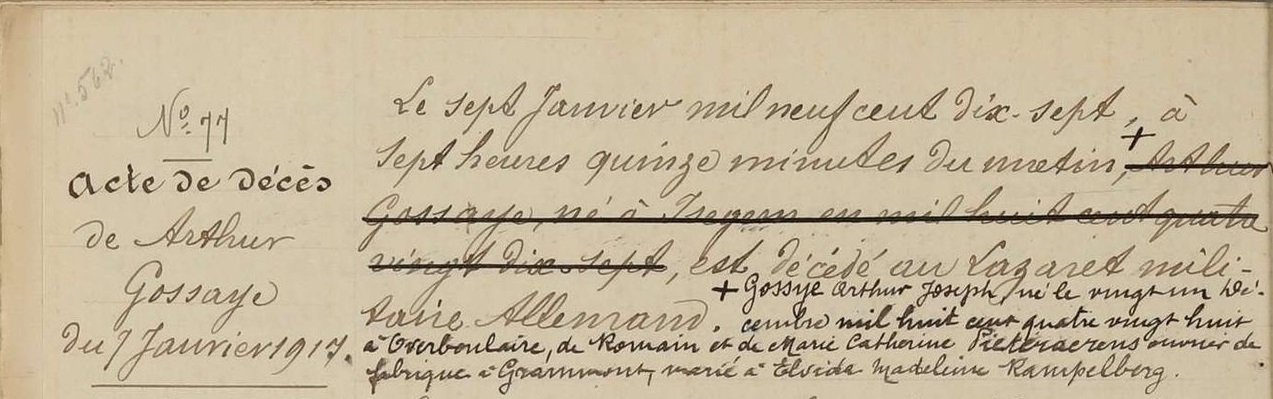 n°. 562.
N°. 77
Acte de décès
de Arthur
Gossaye
du 7 Janvier 1917.
Le sept Janvier mil neuf cent dix-sept, à
sept heures quinze minutes du matin, + Arthur
Gossaye, né à Isegem en mil huit cent quatre
vingt dix-sept, est décédé au Lazaret mili-
taire Allemand.
+ Gossye Arthur Joseph, né le vingt un Dé-
cembre mil huit cent quatre vingt huit
à Overboulaire, de Romain et de Marie Catherine ouvrier de
fabrique à Grammont, marié à Elvida Madeleine Rampelberg.